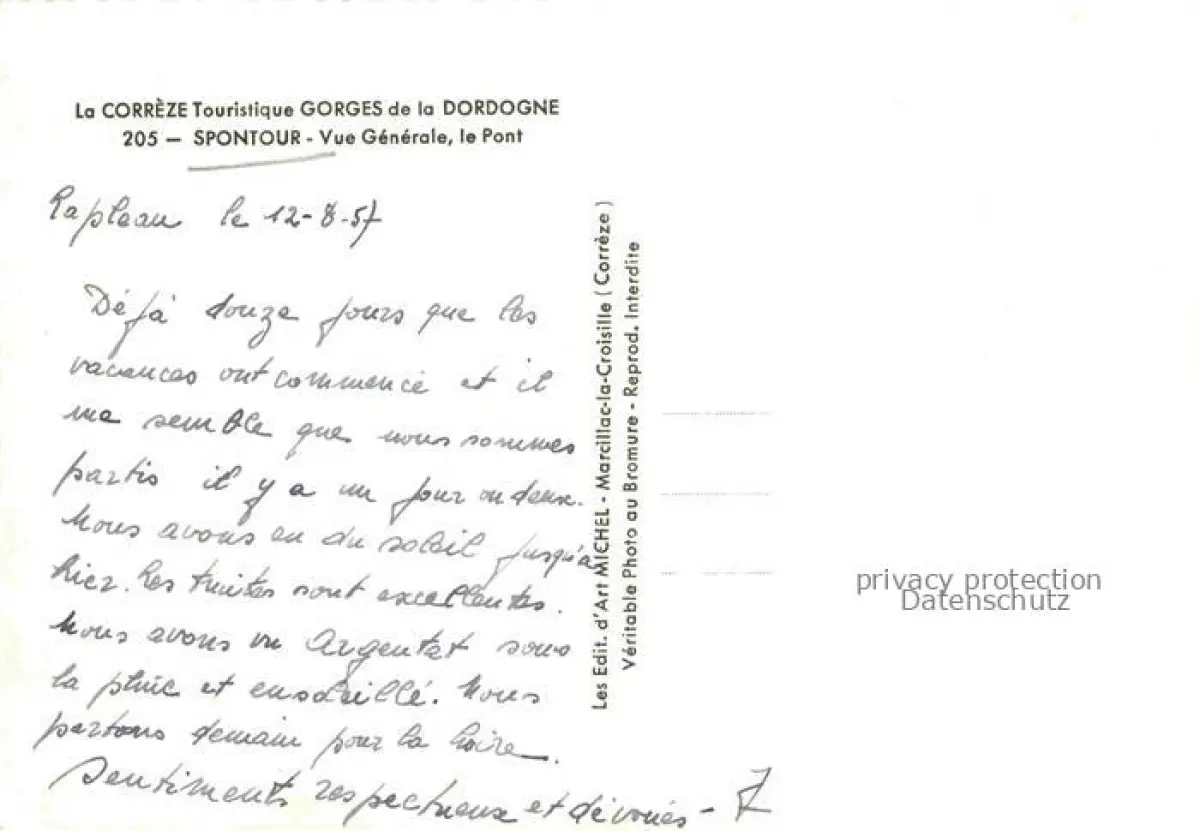 La CORRÈZE Touristique GORGES de la DORDOGNE
205 — SPONTOUR - Vue Générale, le Pont
Lapleau le 12-8-57
Déjà douze jours que les
vacances ont commencé et il
me semble que nous sommes
partis il y a un jour ou deux.
Nous avons eu du soleil jusqu'à
hier. Les truites sont excellentes.
Nous avons vu Argentat sous
la pluie et ensoleillé. Nous
partons demain pour la Loire.
Sentiments respectueux et dévoués -
Les Edit. d'Art MICHEL - Marcillac-la-Croisille ( Corrèze )
Véritable Photo au Bromure - Reprod. Interdite
privacy protection
Datenschutz